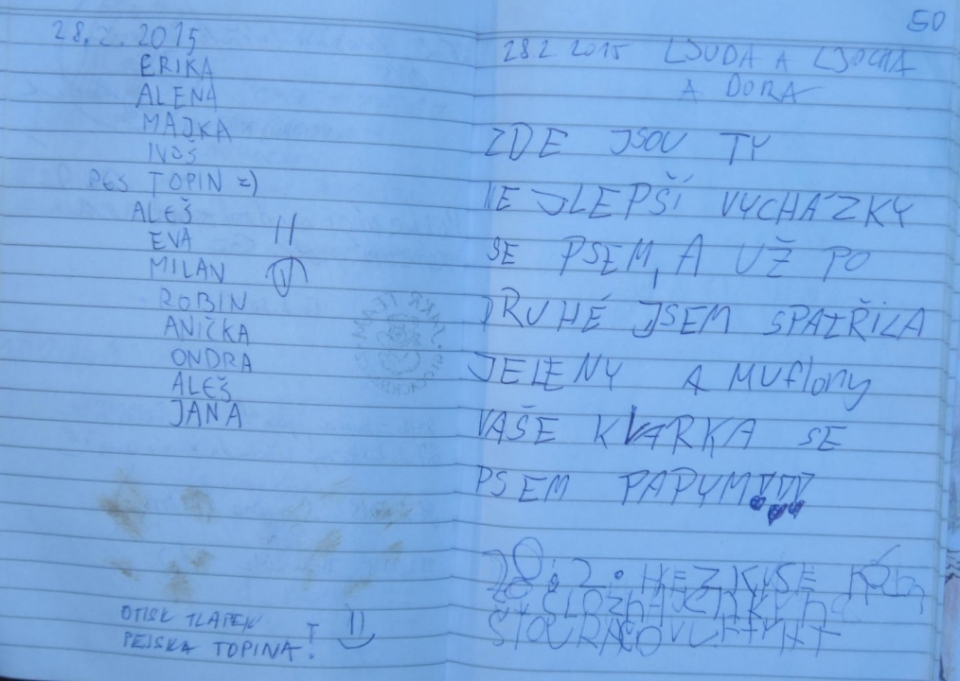 28.2.2015
ERIKA
ALENA
MAJKA
IVOŠ
PES TOPIN =)
ALEŠ
EVA
MILAN
ROBIN
ANIČKA
ONDRA
ALEŠ
JANA
OTISK TLAPEK
PEJSKA TOPINA!
50
28.2 2015 LJUDA A LJOCHA
A DORA
ZDE JSOU TY
NEJLEPŠÍ VYCHÁZKY
SE PSEM, A UŽ PO
DRUHÉ JSEM SPATŘILA
JELENY A MUflony
VAŠE KVARKA SE
PSEM PAPYM!!!
28.2. HEZKY SE